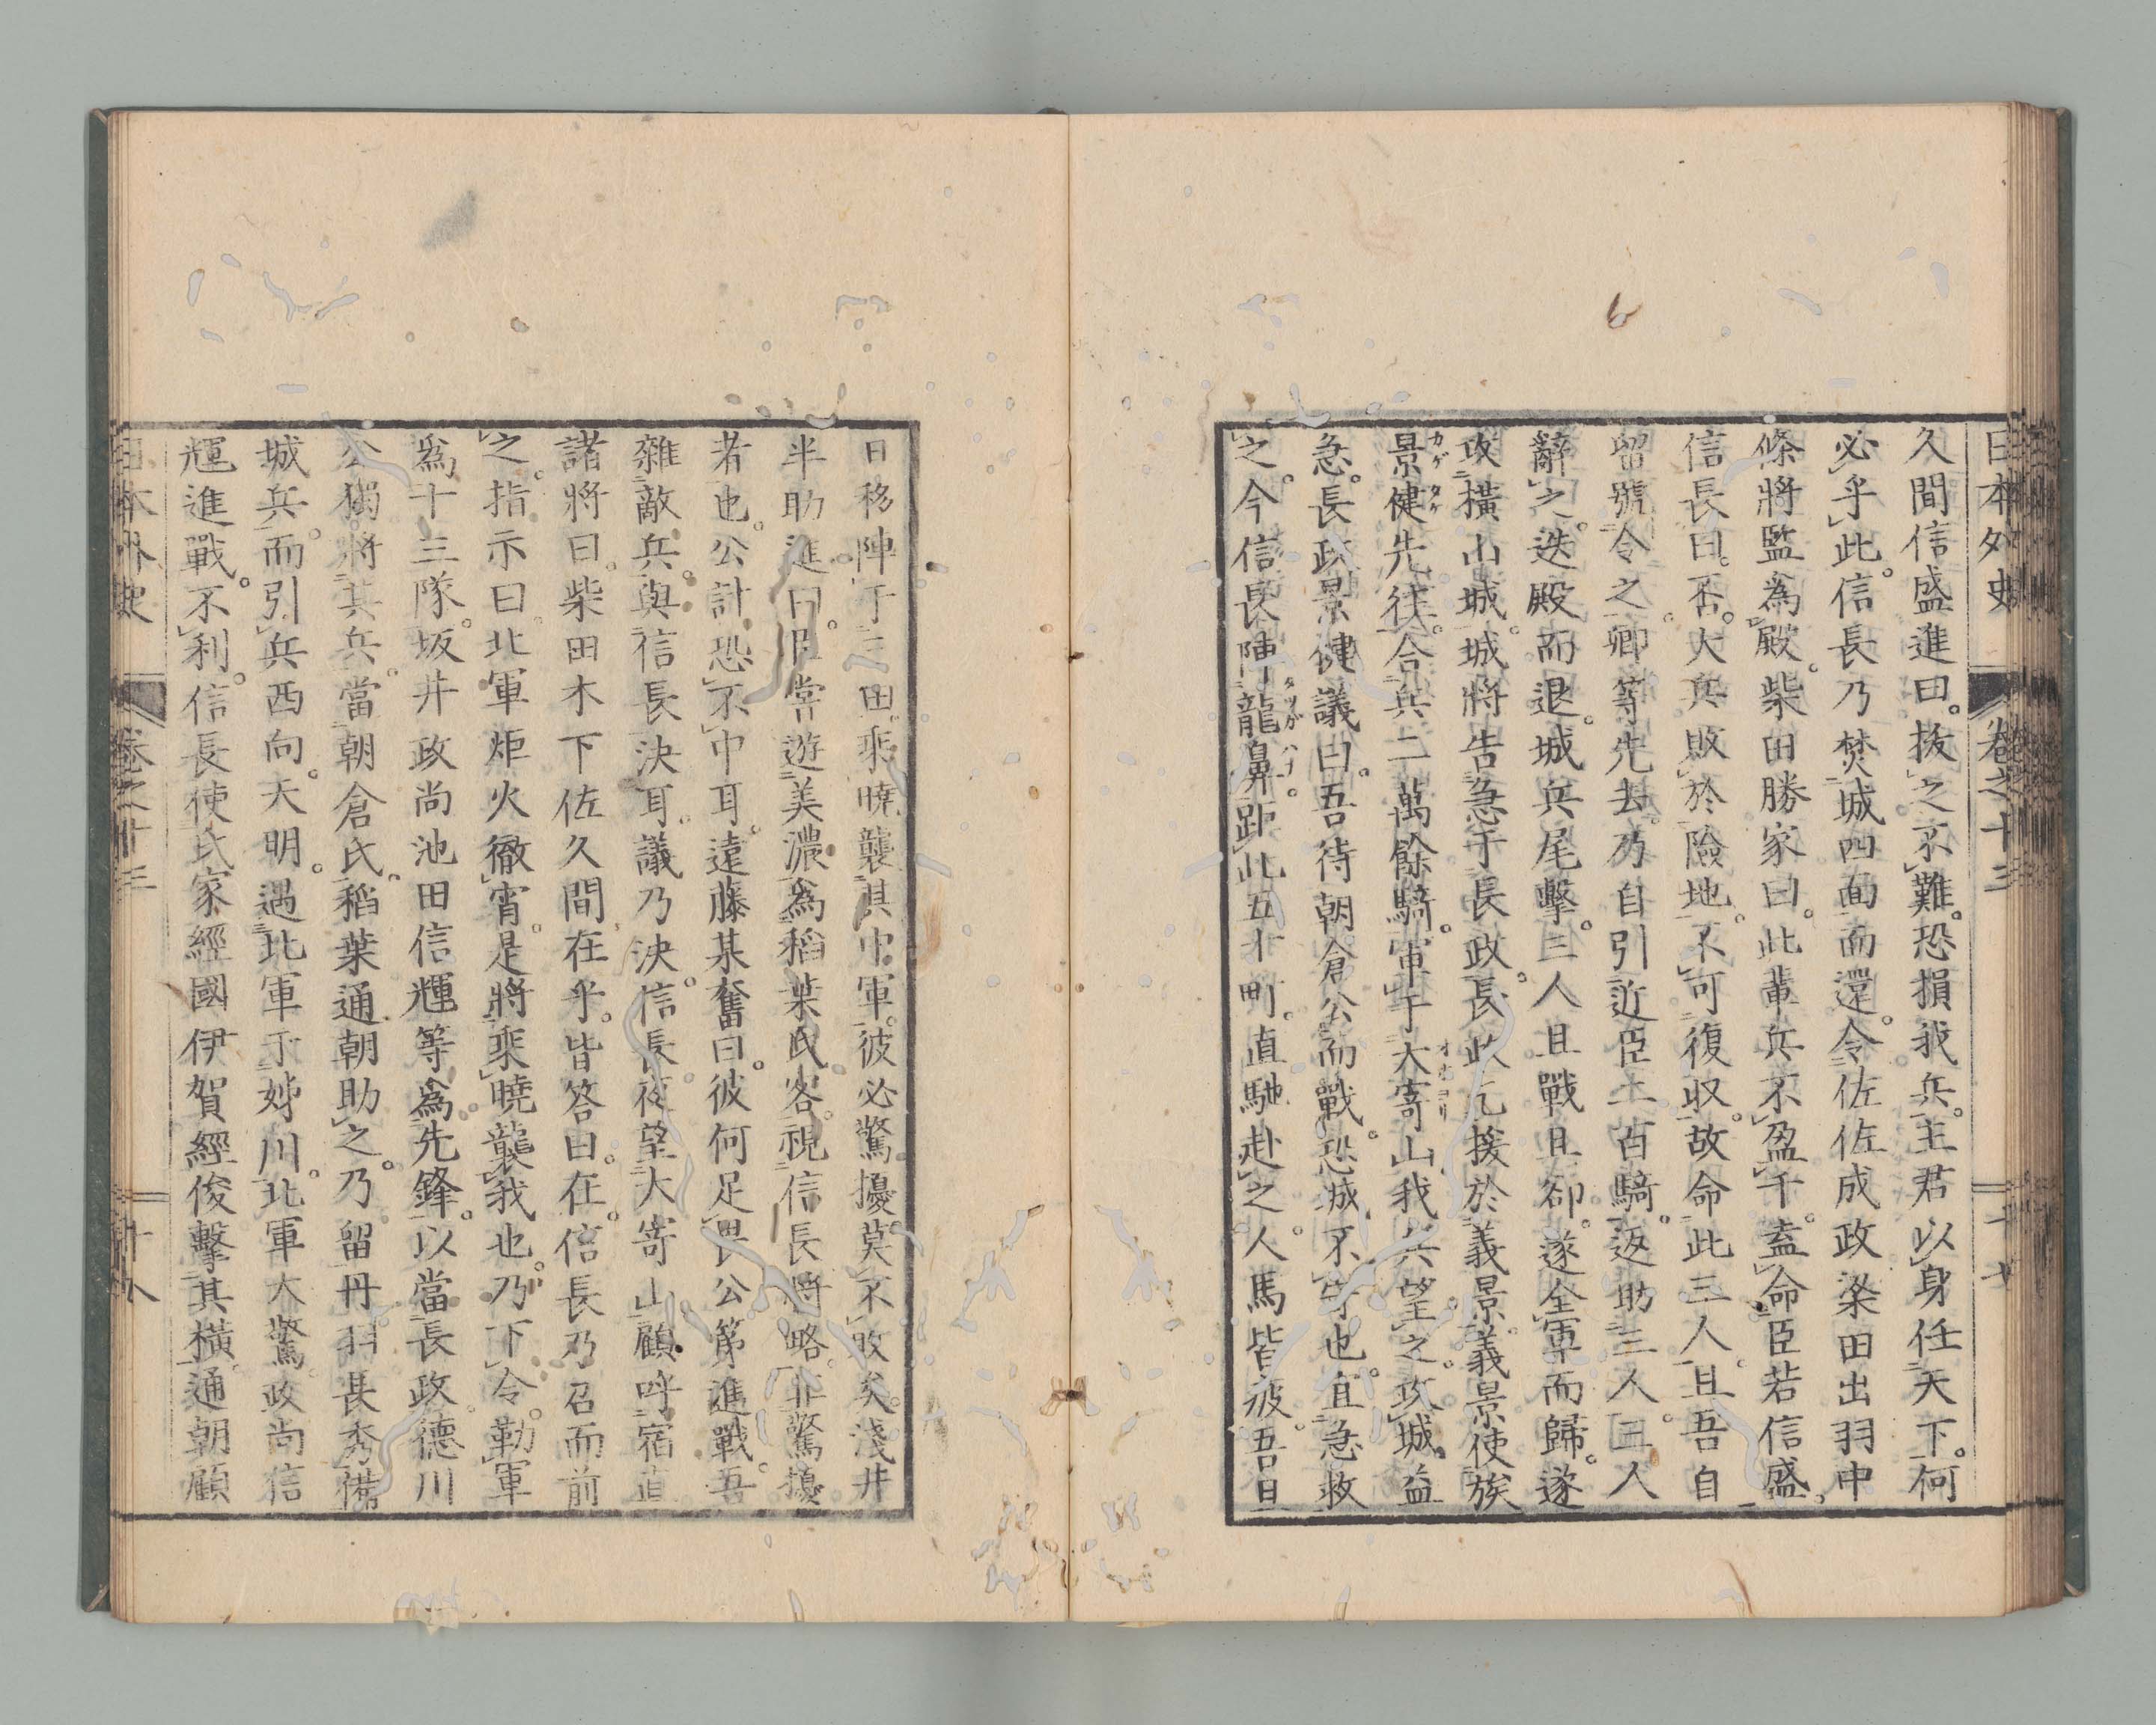 日本外史 卷之十三 二十七
久間信盛進曰。拔之不難。恐損我兵。主君以身任天下。何
必乎此。信長乃焚城四面而還。令佐佐成政梁田出羽中
條將監爲殿。柴田勝家曰。此輩兵不盈千。盍命臣若信盛。
信長曰。否。大兵敗於險地。不可復収。故命此三人。且吾自
留號令之。卿等先去。乃自引近臣二百騎。返助三人。三人
辭之。迭殿而退。城兵尾擊。三人且戰且卻。遂全軍而歸。遂
攻橫山城。城將告急于長政。長政乞援於義景。義景使族
景健先往。合兵二萬餘騎。軍于大寄山。我兵望之。攻城益
カゲ タケ
オホヨリ
急。長政景健議曰。吾待朝倉公而戰。恐城不守也。宜急救
之。今信長陣龍鼻。距此五十町。直馳赴之。人馬皆疲。吾且
タツガハナ
日移陣于三田。乘曉襲其中軍。彼必驚擾。莫不敗矣。淺井
半助進曰。臣嘗遊美濃。爲稻葉氏客。視信長將略。非驚擾
者也。公計恐不中耳。遠藤某奮曰。彼何足畏。公第進戰。吾
雜敵兵。與信長決耳。議乃決。信長夜望大寄山。顧呼宿直
諸將曰。柴田木下佐久間在乎。皆答曰。在。信長乃召而前
之。指示曰。北軍炬火徹宵。是將乘曉襲我也。乃下令。勒軍
爲十三隊。坂井政尚池田信輝等爲先鋒。以當長政。德川
公獨將其兵。當朝倉氏。稻葉通朝助之。乃留丹羽長秀。備
城兵。而引兵西向。天明。遇北軍于姊川。北軍大驚。政尚信
輝進戰。不利。信長使氏家經國伊賀經俊擊其橫。通朝顧
日本外史 卷之十三 二十八
6